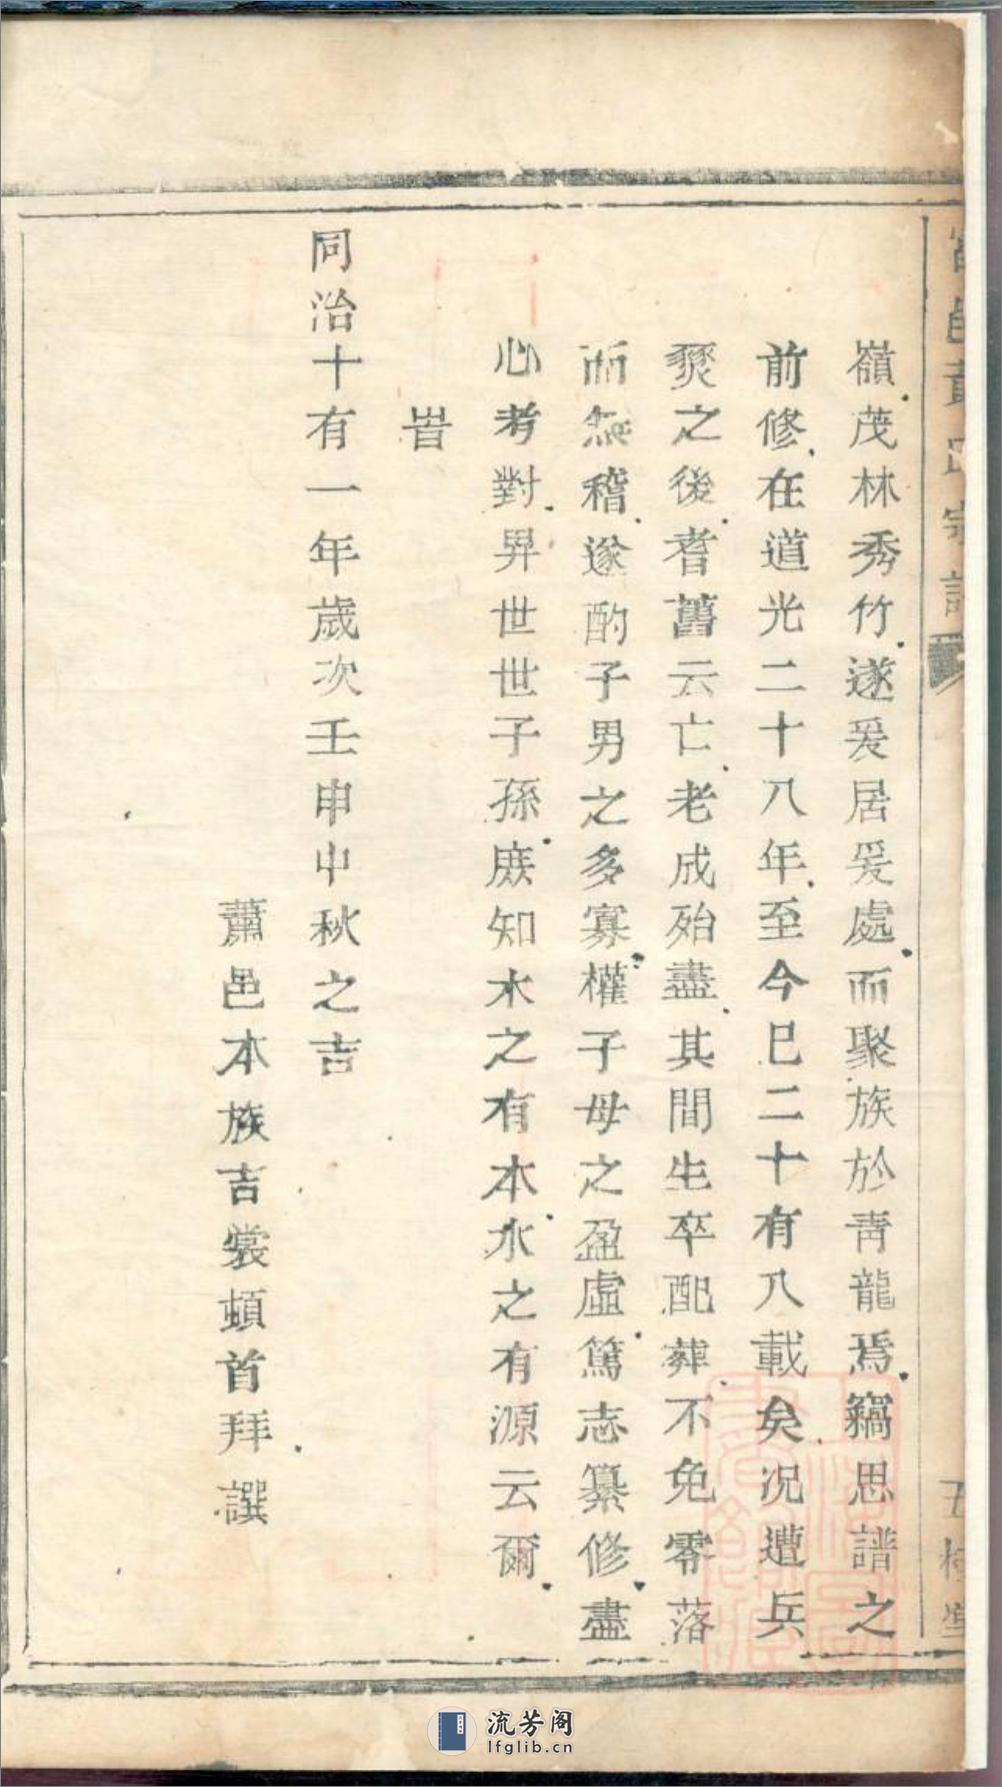 嶺茂林秀竹遂爰居爰處而聚族於靑龍焉竊思譜之
前修在道光二十八年至今巳二十有八載矣况遭兵
燹之後耆舊云亡老成殆盡其間生卒配葬不免零落
而無稽遂酌子男之多寡權子母之盈虛篤志纂修盡
心考對畀世世子孫庻知木之有本水之有源云爾
旹
同治十有一年歲次壬申中秋之吉
蕭邑本族吉裳頓首拜譔
流芳阁
lfglib.cn